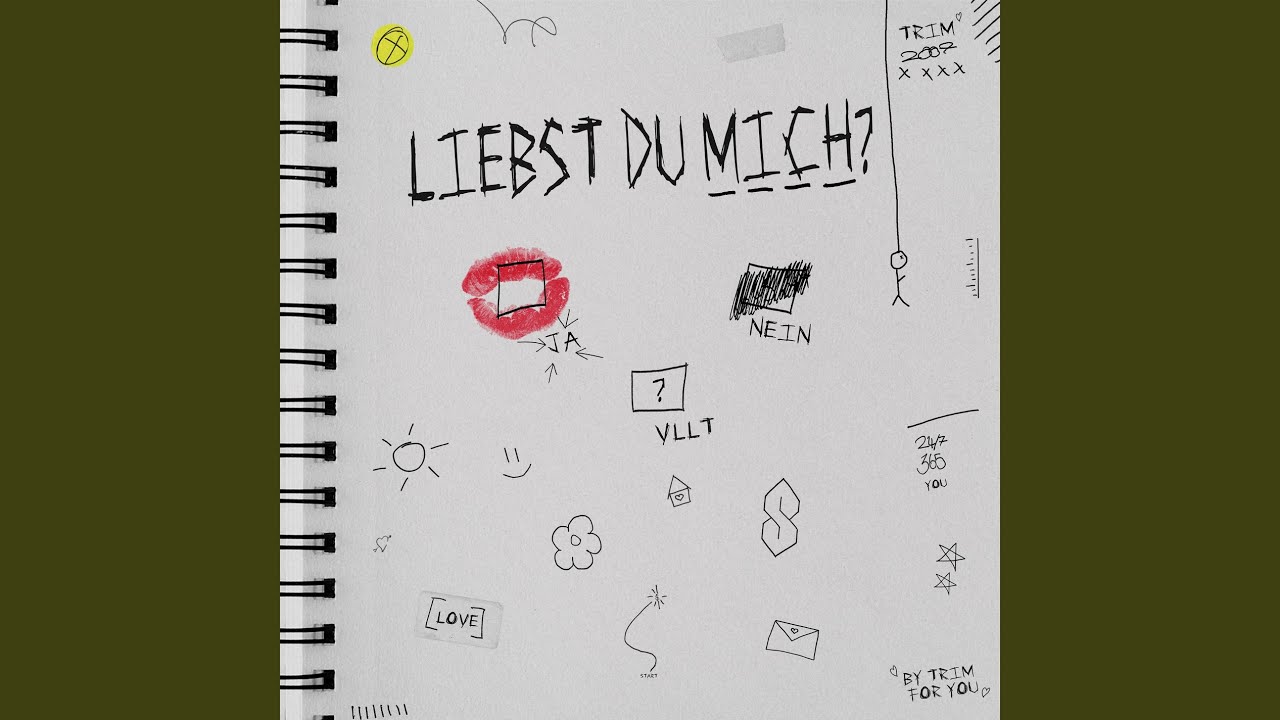 TRIM
2009
X X X X
LIEBST DU MICH?
JA
NEIN
?
VLLT
24/7
365
YOU
[LOVE]
START
BY TRIM
FOR YOU